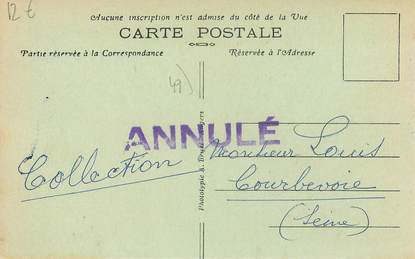 12 €
Aucune inscription n'est admise du côté de la Vue
CARTE POSTALE
Partie réservée à la Correspondance
Réservée à l'Adresse
49)
ANNULÉ
Collection
Monsieur Louis
Courbevoie
(Seine)
Phototypie A. Bruel Angers